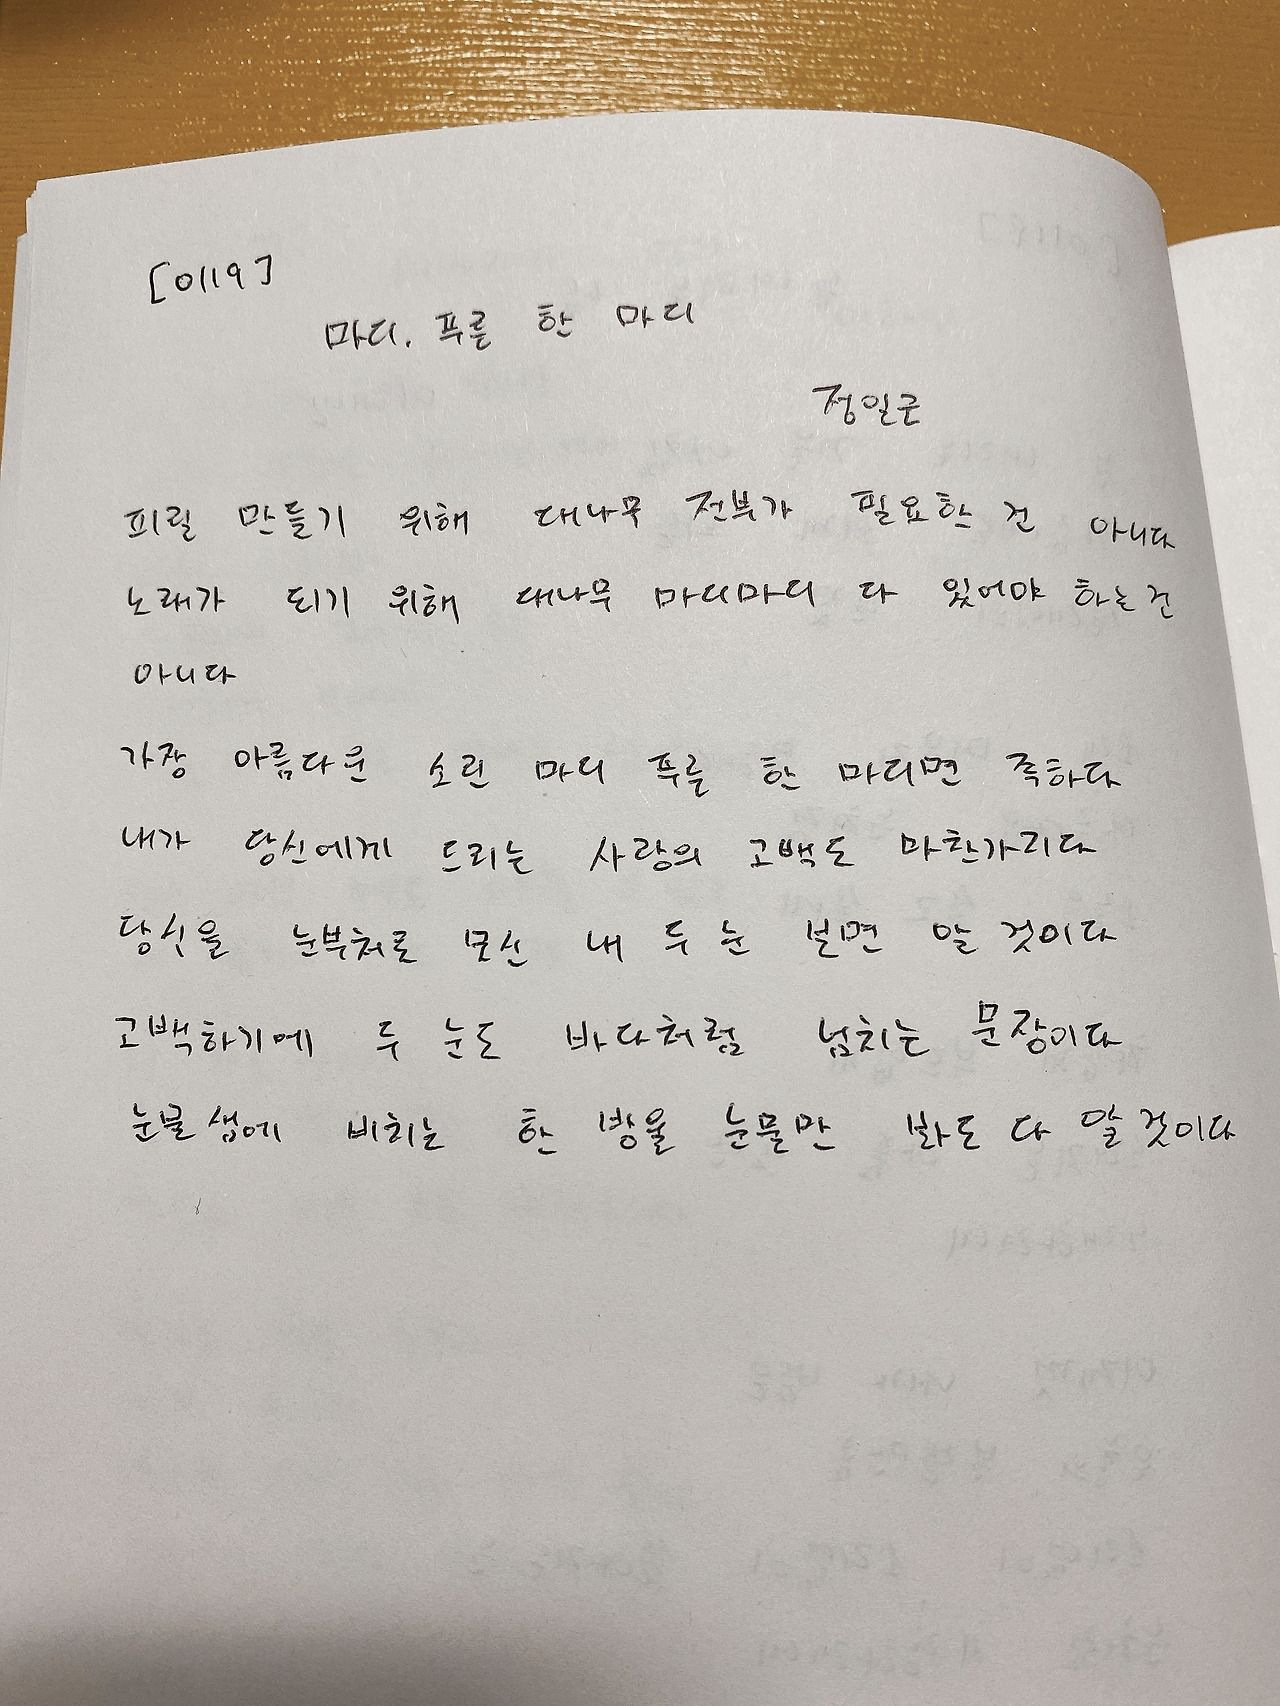 [0119]
마디. 푸른 한 마디
정일근
피릴 만들기 위해 대나무 전부가 필요한 건 아니다
노래가 되기 위해 대나무 마디마디 다 있어야 하는 건
아니다
가장 아름다운 소린 마디 푸른 한 마디면 족하다
내가 당신에게 드리는 사랑의 고백도 마찬가지다
당신을 눈부처로 모신 내 두 눈 보면 알 것이다
고백하기에 두 눈도 바다처럼 넘치는 문장이다
눈물샘에 비치는 한 방울 눈물만 봐도 다 알 것이다